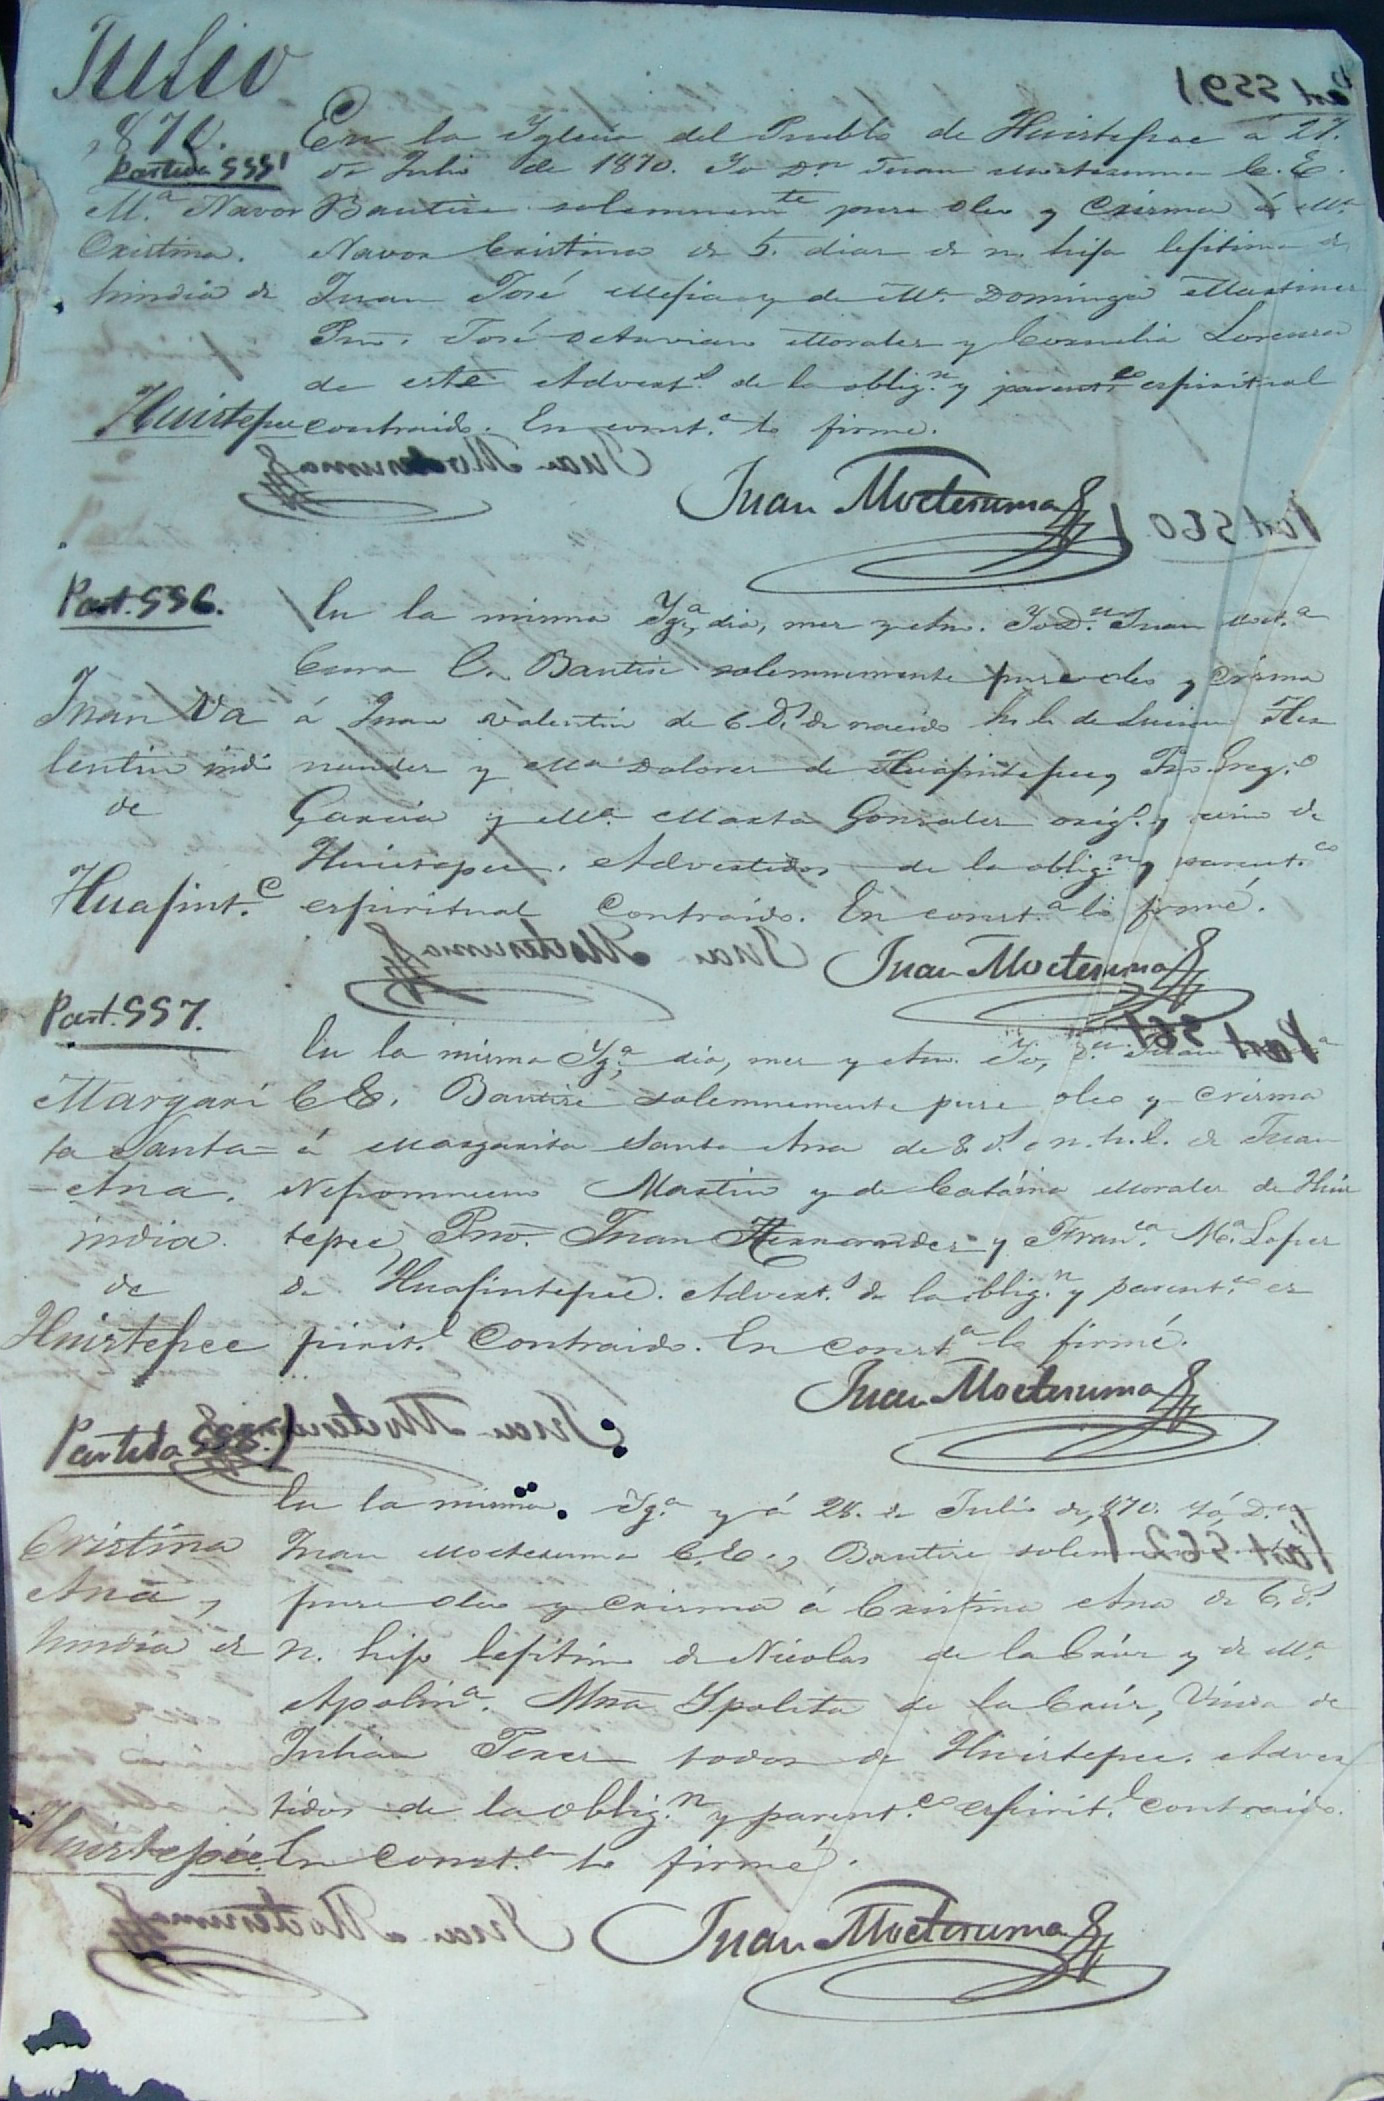 Julio
1870.
Partida 555
Mª Navor
Cristina.
hindia de
Huistepec
En la Yglecia del Pueblo de Huistepec a 27.
de Julio de 1870. Yo Dn Juan Moctesuma C. E.
Bautise solemnemte puse oleo y Crisma á Mª
Navor Cristina de 5. dias de n. hija lefitima de
Juan José Mefia y de Mª Dominga Martines
Pno. José Octaviano Morales y Cornelia Lorensa
de este Advertos de la obligⁿ y parentco espiritual
contraido. En constª lo firme.
Juan Moctesuma
Part. 556.
Juan Va
lentin indi
de
Huafint.c
En la misma Ygª, dia, mes y año. Yo Dn Juan Moctª
Cura E. Bautise solemnemente puse oleo y Crisma
á Juan Valentin de 6 Ds de nacido h. l. de Luciano Her
nandes y Mª Dolores de Huafintepec, Pno Grego
Garcia y Mª Marta Gonsales orig.s y vecino de
Huistepec. Advertidos de la obligⁿ y parentco
espiritual Contraido. En constª lo firmé.
Juan Moctesuma
Part. 557.
Margari
ta Santa=
-Ana.
india.
de
Huistepec
En la misma Ygª dia, mes y año. Yo, Dn Juan
C E. Bautise solemnemente puse oleo y Crisma
á Margarita Santa Ana de 8. ds n. h. l. de Juan
Nepomuceno Martin y de Catarina Morales de Huis
tepec, Pno. Juan Hernarndes y Francª Mª Lopes
de Huafintepec. Advert.s de la obligⁿ y parentco es
pirit.l Contraido. En constª lo firmé.
Juan Moctesuma
Partida 558.
Cristina
Ana,
hindia de
Huistepec.
En la misma. Ygª y á 28. de Julio de 1870. Yó, Dn
Juan Moctesuma C. E., Bautise solemnemente
puse oleo y crisma á Cristina Ana de 6. ds
n. hifa lefitima de Nicolas de la Crus y de Mª
Apolinª. Mna Ypolita de la Crús, Viuda de
Julian Peres todos de Huistepec. Adver
tidos de la obligⁿ y parentco espirit.l contraido.
En constª lo firmé.
Juan Moctesuma